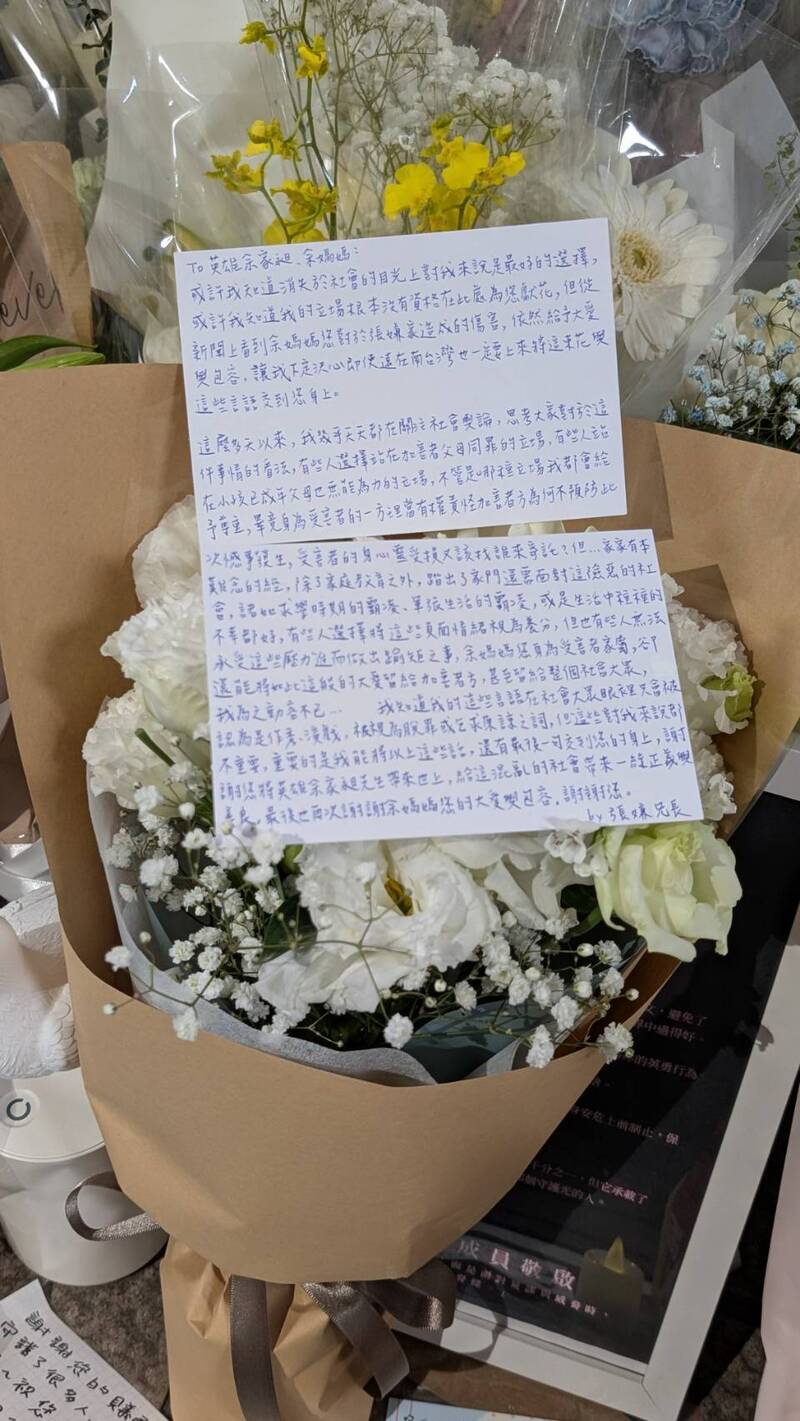 To 英雄余家昶、余媽媽:
或許我知道消失於社會的目光上對我來說是最好的選擇,
或許我知道我的立場根本沒有資格在此處為您獻花,但從
新聞上看到余媽媽您對於張嫌家造成的傷害,依然給予大愛
與包容,讓我下定決心即便遠在南台灣也一定要上來將這束花與
這些言語交到您身上。
這麼多天以來,我幾乎天天都在關注社會輿論,思考大家對於這
件事情的看法,有些人選擇站在加害者父母同罪的立場,有些人站
在小孩已成年父母也無能為力的立場,不管是哪種立場我都會給
予尊重,畢竟身為受害者的一方理當有權責怪加害者方為何不預防此
次憾事發生,受害者的身心靈受損又該找誰來寄託?但...家家有本
難念的經,除了家庭教育之外,踏出了家門還需面對這險惡的社
會,諸如求學時期的霸凌、軍旅生活的霸凌,或是生活中種種的
不幸都好,有些人選擇將這些負面情緒視為養分,但也有些人無法
承受這些壓力進而做出踰矩之事,余媽媽您身為受害者家屬,卻
還能將如此這般的大愛留給加害者方,甚至留給整個社會大眾,
我為之動容不已... 我知道我的這些言語在社會大眾眼裡只會被
認為是作秀、演戲,被視為脫罪或乞求原諒之詞,但這些對我來說都
不重要,重要的是我能將以上這些話,還有最後一句交到您的身上,謝
謝您將英雄余家昶先生帶來世上,給這混亂的社會帶來一絲正義與
善良,最後也再次謝謝余媽媽您的大愛與包容,謝謝您。
by 張嫌兄長
文,避免了
中過得好。
的英勇行為
身安危上前制止,保
十分之一,但它承載了
個守護光的人。
成員敬啟
ever
謝謝您的
守護了很多人
祝您